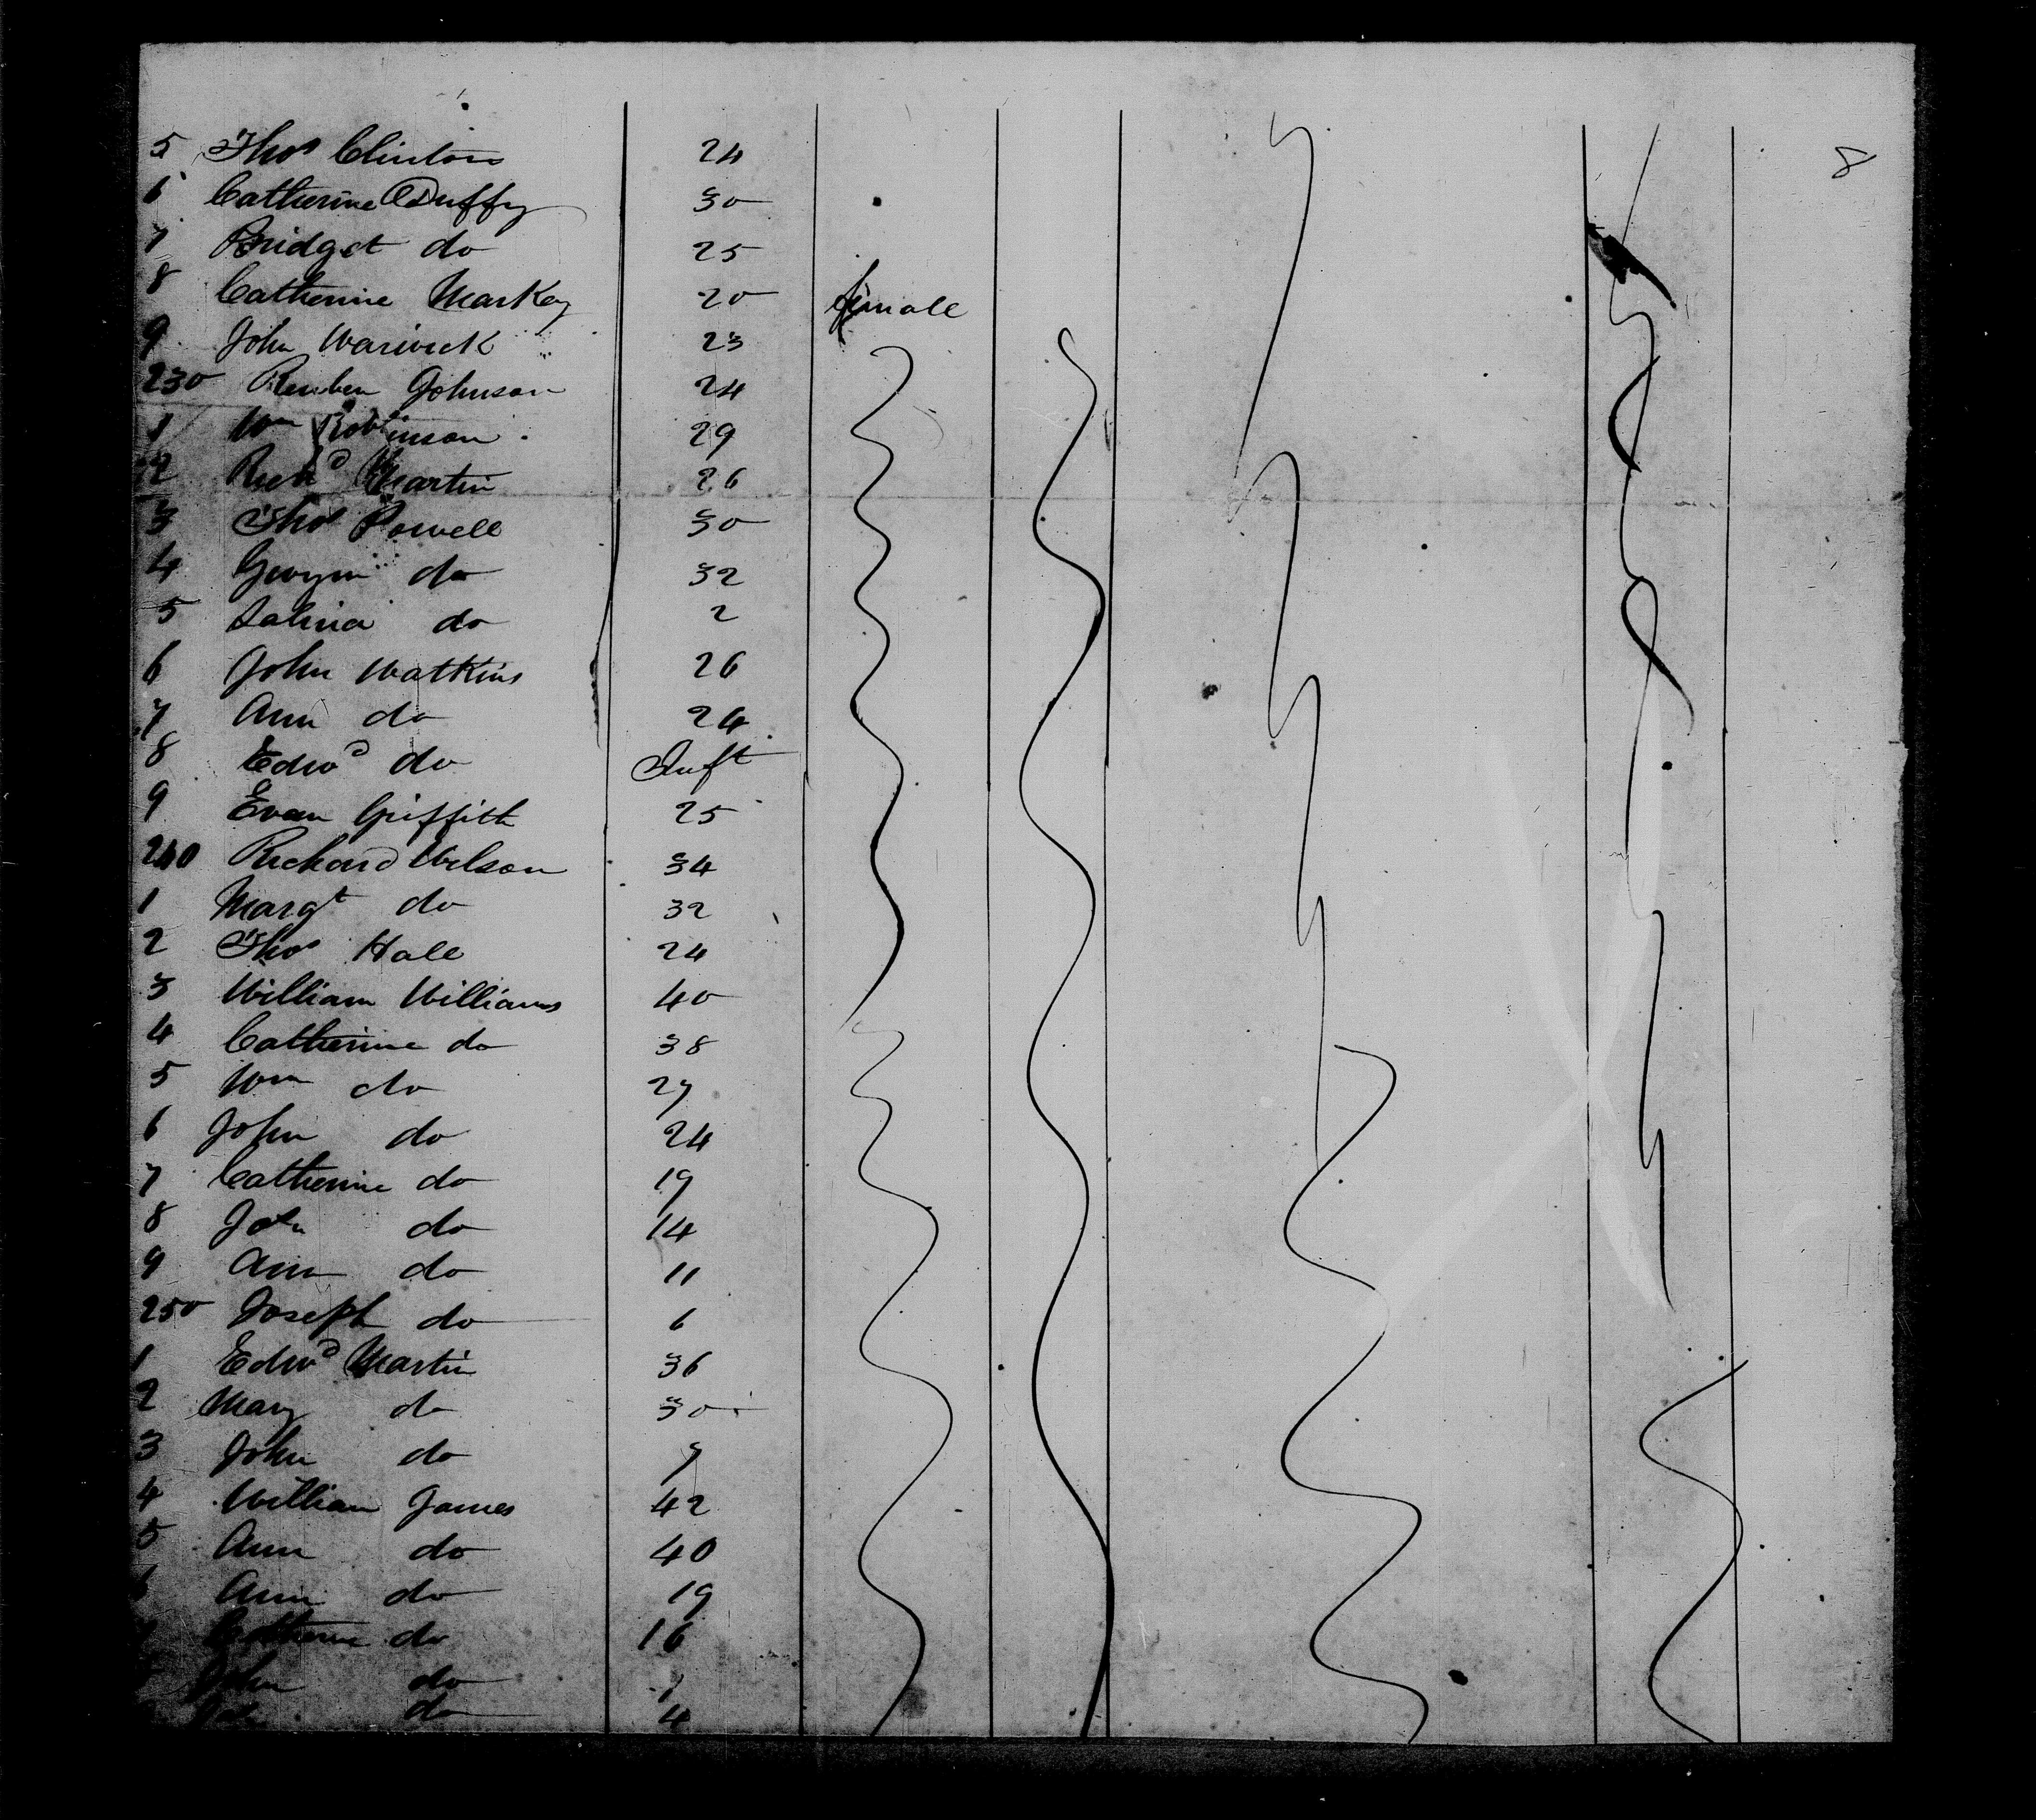 8
5 Thos Clinton 24
6 Catherine Duffy 30
7 Bridget do 25
8 Catherine Markey 20 female
9 John Warwick 23
230 Reuben Johnson 24
1 Wm Robinson 29
2 Richd Martin 26
3 Thos Powell 30
4 Gwynn do 32
5 Salina do 2
6 John Watkins 26
7 Ann do 24
8 Edwd do Inft
9 Evan Griffith 25
240 Richard Wilson 34
1 Margt do 32
2 Thos Hall 24
3 William Williams 40
4 Catherine do 38
5 Wm do 27
6 John do 24
7 Catherine do 19
8 do 14
9 Ann do 11
250 Joseph do 6
1 Edwd Martin 36
2 Mary do 30
3 John do 7
4 William James 42
5 Ann do 40
6 Ann do 19
7 Catherine do 16
John do 7
do 4